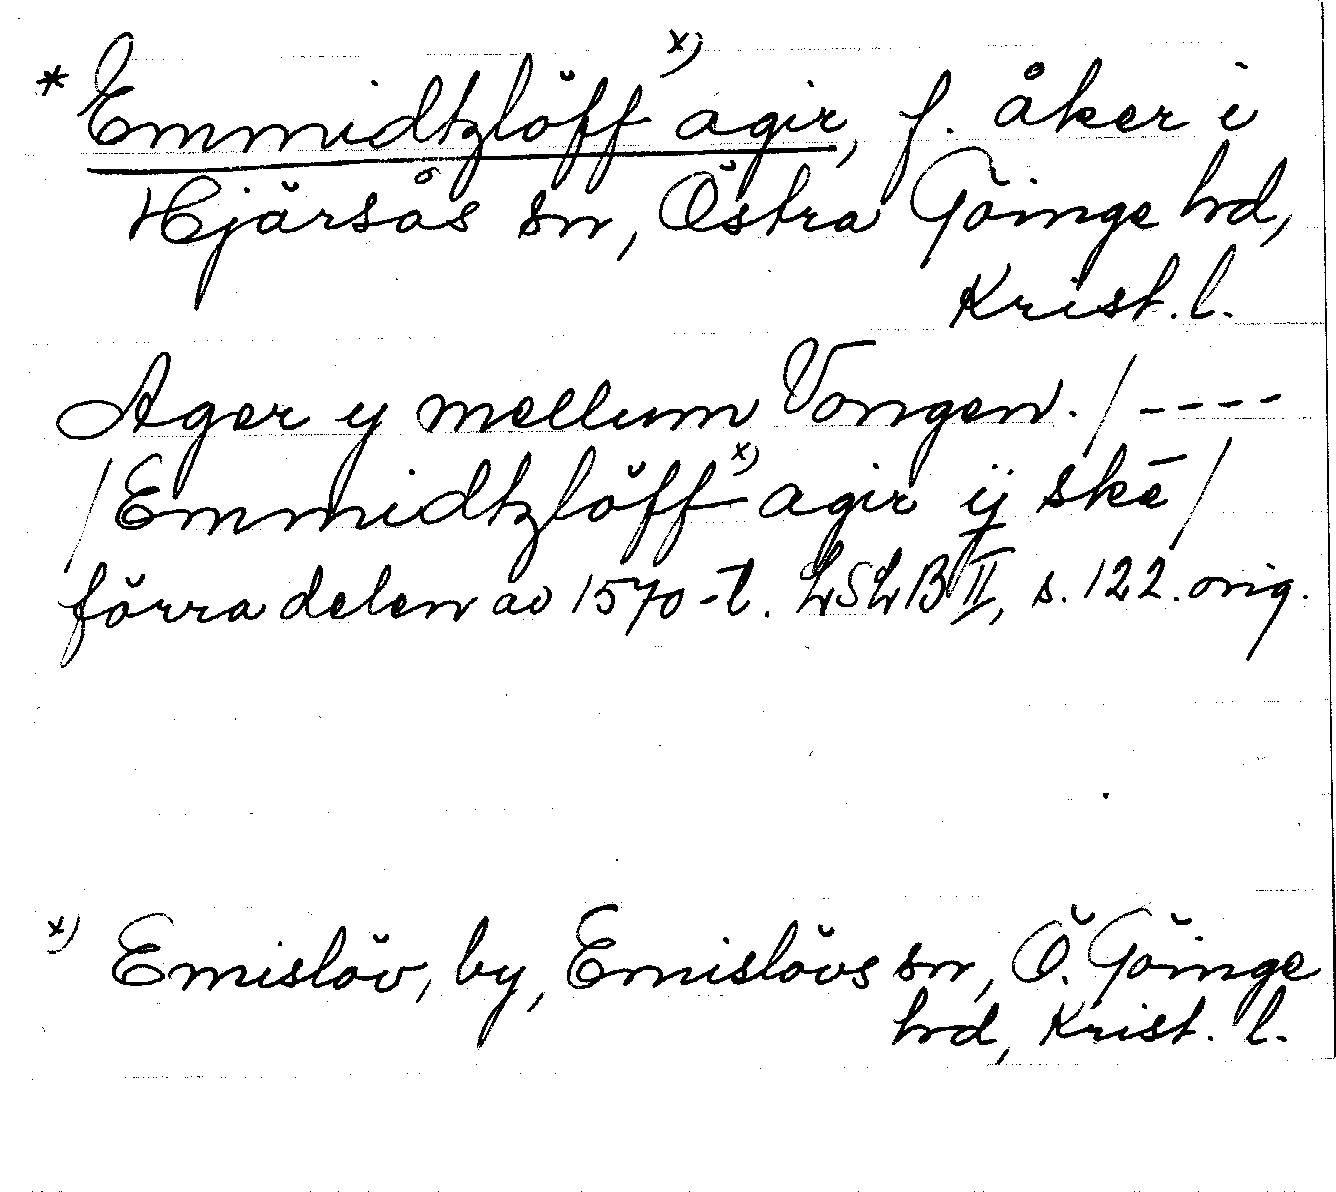 * Emmidtzlöff x) agir, f. åker i
Hjärsås sn, Östra Göinge hd,
Krist. l.
Ager y mellum Vongen. / ----
/ Emmidtzlöff x) agir ij skē /
förra delen av 1570-t. LSLB II, s. 122. orig.
x) Emislöv, by, Emislövs sn, Ö. Göinge
hd, Krist. l.